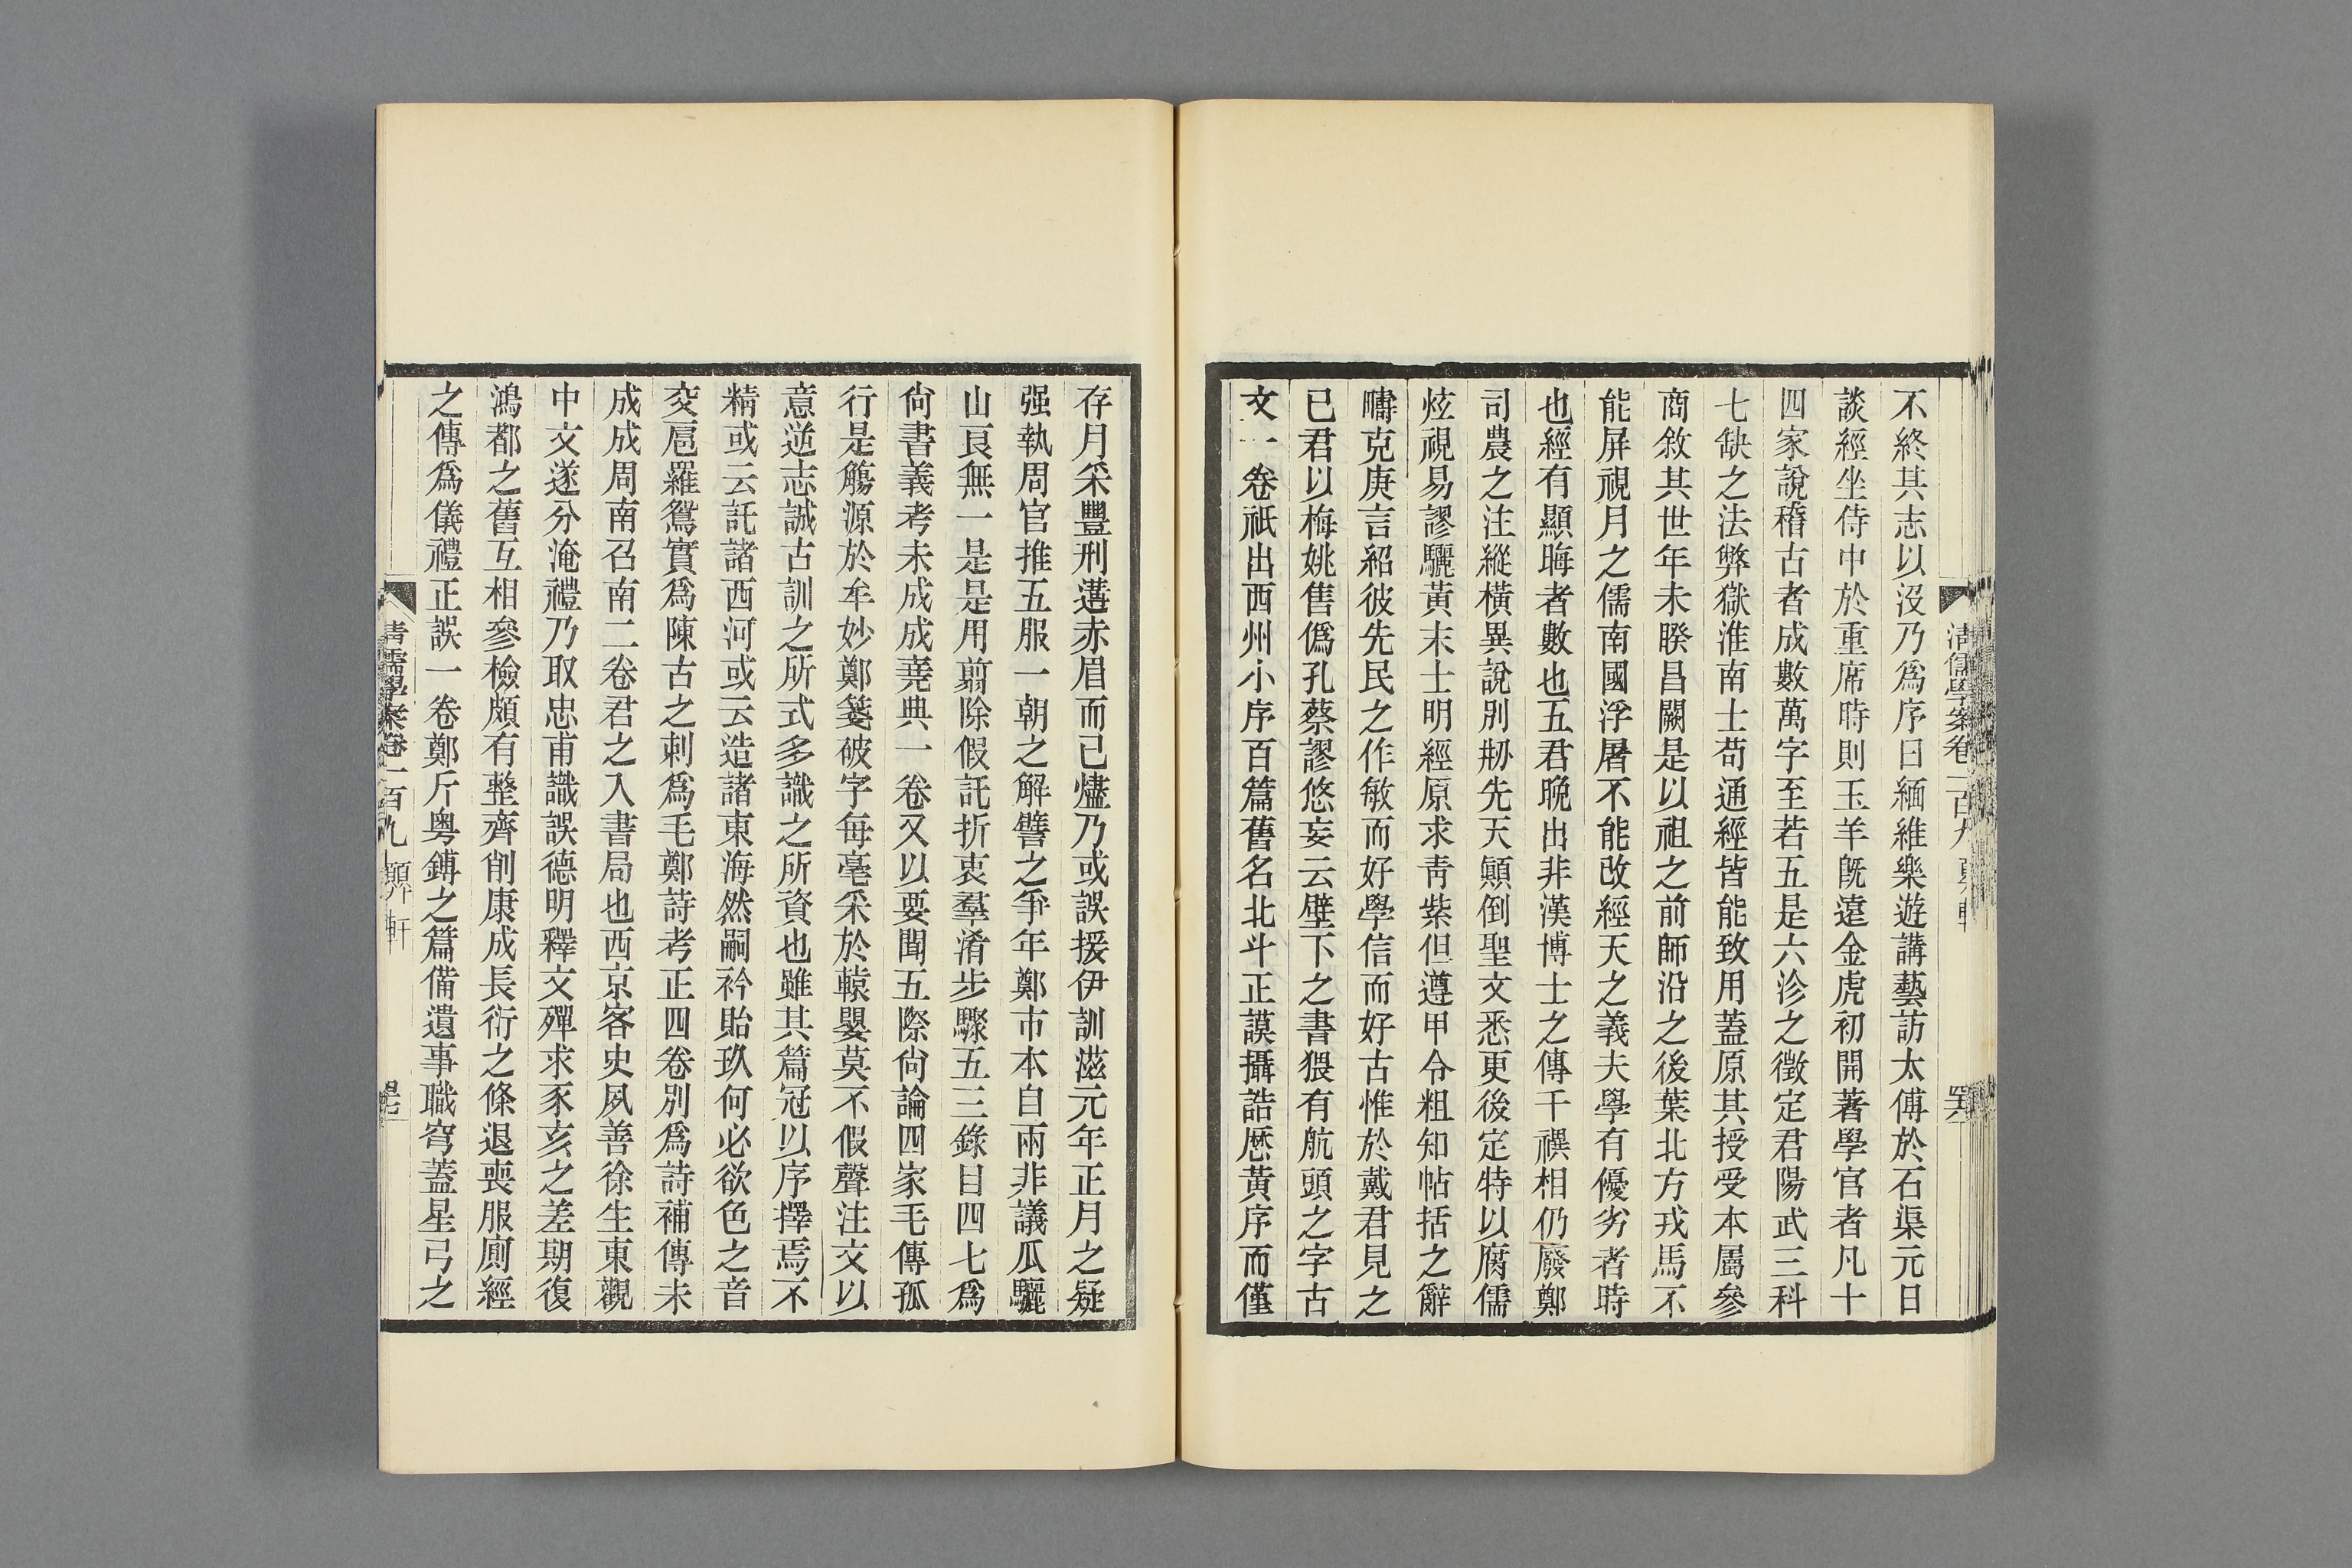 清儒學案卷一百九
不終其志以沒乃為序曰緬維樂遊講藝訪太傅於石渠元日
談經坐侍中於重席時則玉羊旣遠金虎初開著學官者凡十
四家說稽古者成數萬字至若五是六沴之徵定君陽武三科
七缺之法弊獄淮南士苟通經皆能致用蓋原其授受本屬參
商敘其世年未睽昌闕是以祖之前師沿之後葉北方戎馬不
能屏視月之儒南國浮屠不能改經天之義夫學有優劣者時
也經有顯晦者數也五君晚出非漢博士之傳干禩相仍廢鄭
司農之注縱橫異說別刱先天顚倒聖文悉更後定特以腐儒
炫視易謬驪黃末士明經原求靑紫但遵甲令粗知帖括之辭
疇克庚言紹彼先民之作敏而好學信而好古惟於戴君見之
已君以梅姚售僞孔蔡謬悠妄云壁下之書猥有航頭之字古
文一卷祇出西州小序百篇舊名北斗正謨攝誥厯黃序而僅
存月采豐刑遘赤眉而已燼乃或誤援伊訓滋元年正月之疑
强執周官推五服一朝之解譬之爭年鄭市本自兩非議瓜驪
山良無一是是用翦除假託折衷羣淆步驟五三錄目四七爲
尙書義考未成成堯典一卷又以要聞五際尙論四家毛傳孤
行是觴源於牟妙鄭箋破字每毫采於轅嬰莫不假聲注文以
意逆志誠古訓之所式多識之所資也雖其篇冠以序擇焉不
精或云託諸西河或云造諸東海然嗣衿貽玖何必欲色之音
交扈羅鴛實爲陳古之刺爲毛鄭詩考正四卷別爲詩補傳未
成成周南召南二卷君之入書局也西京客史夙善徐生東觀
中文遂分淹禮乃取忠甫識誤德明釋文殫求豕亥之差期復
鴻都之舊互相參檢頗有整齊削康成長衍之條退喪服廁經
之傳爲儀禮正誤一卷鄭斤粵鎛之篇備遺事職穹蓋星弓之
清儒學案卷一百九 顨軒